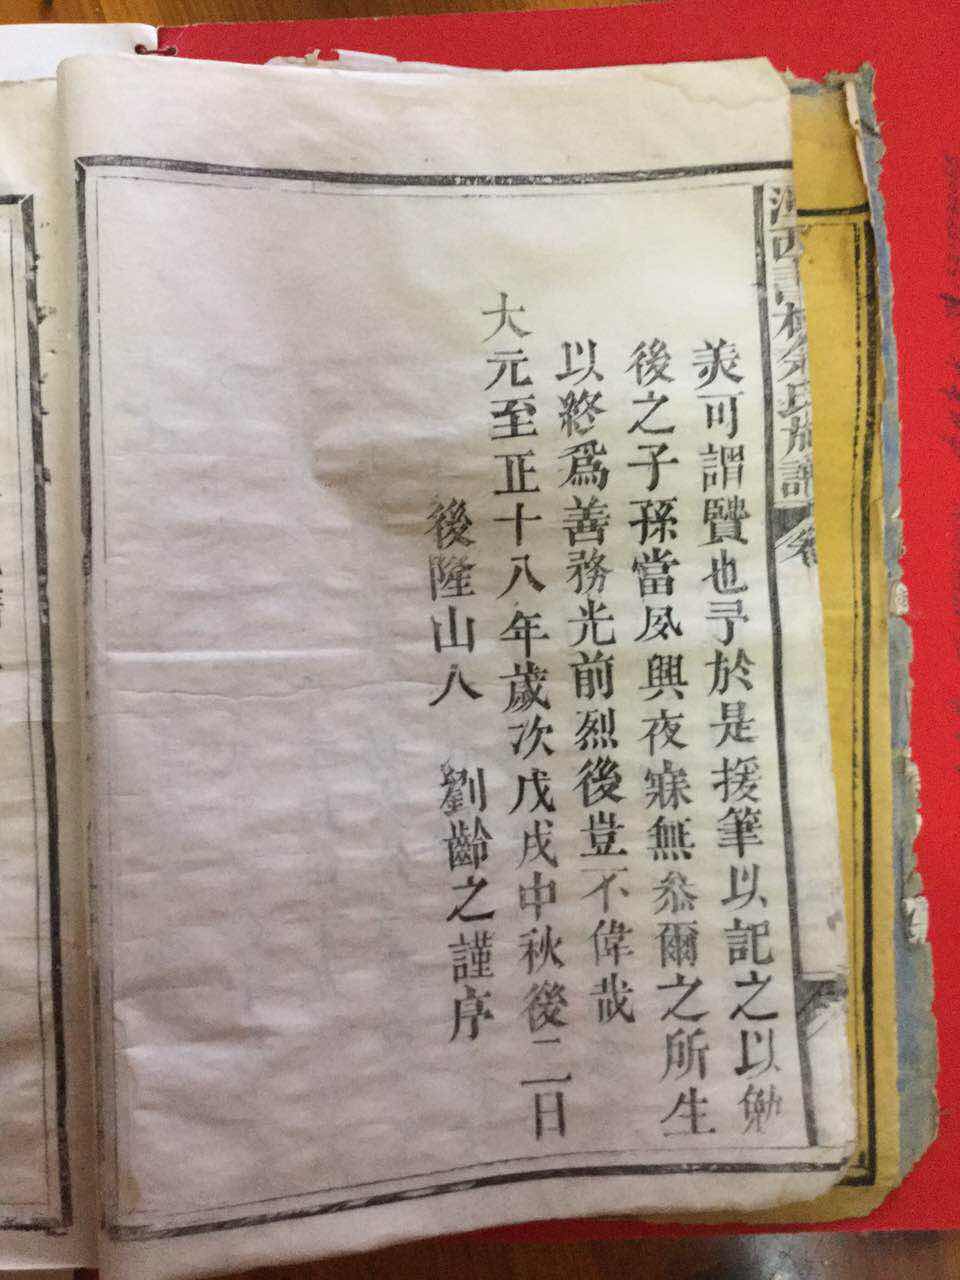 羙可謂賢也予於是援筆以記之以勉
後之子孫當夙興夜寐無忝爾之所生
以終爲善務光前烈後豈不偉哉
大元至正十八年歲次戊戌中秋後二日
後隆山人　劉齡之謹序
西書
氏族譜